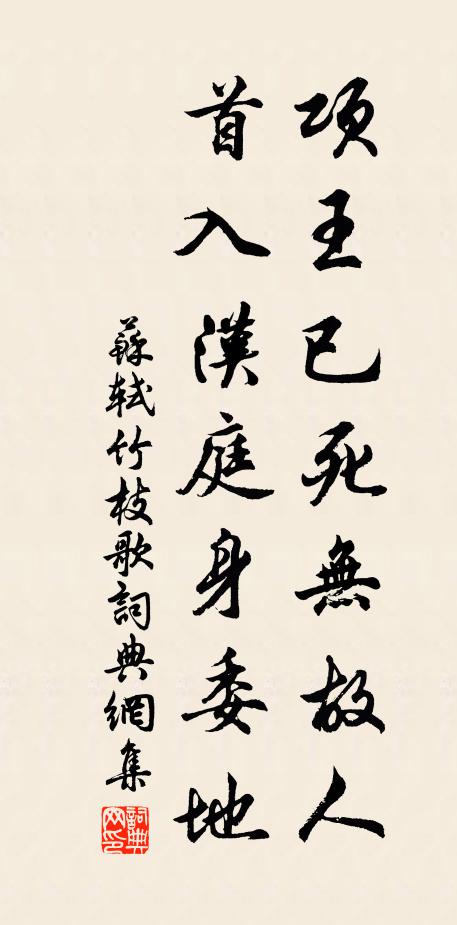 項王已死無故人
首入漢庭身委地
蘇軾竹枝歌詞典網集
詞典
网印